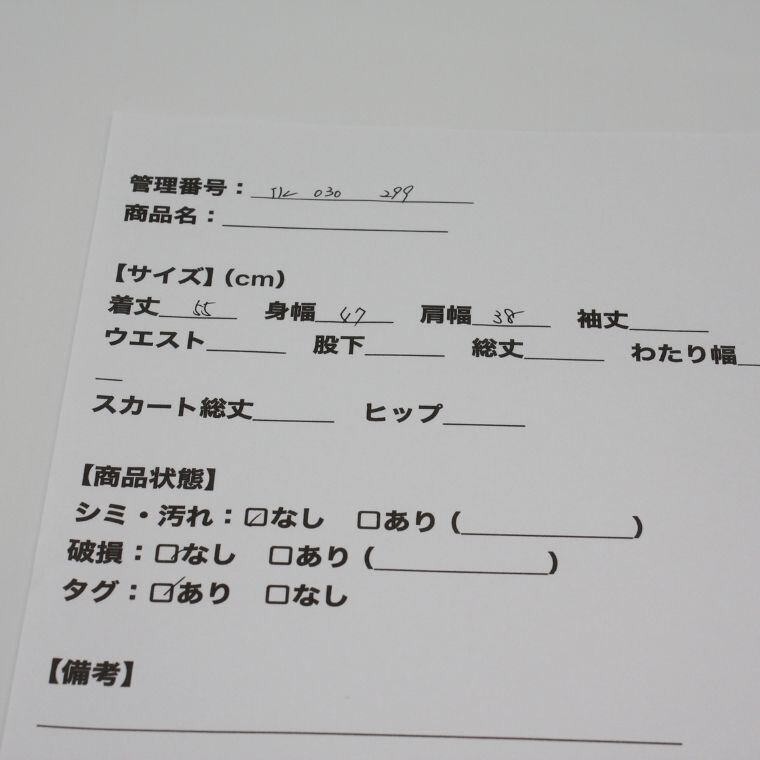 管理番号： 030 299
商品名：
【サイズ】(cm)
着丈 55 身幅 47 肩幅 38 袖丈
ウエスト 股下 総丈 わたり幅
スカート総丈 ヒップ
【商品状態】
シミ・汚れ：☑なし □あり ( )
破損：☑なし □あり ( )
タグ：☑あり □なし
【備考】